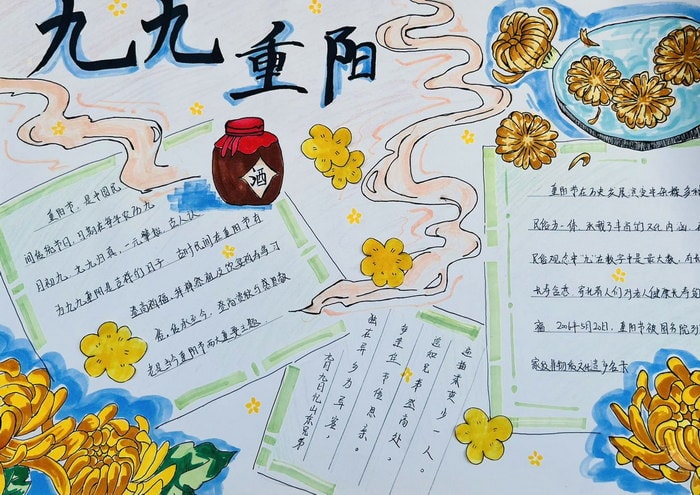 九九重阳
酒
重阳节，是中国民
间传统节日，日期在每年农历九
月初九，九九归真，一元肇始，古人认
为九九重阳是吉祥的日子 古时民间在重阳节有
登高祈福，拜神祭祖及饮宴祈寿等习
俗，传承至今，登高赏秋与感恩敬
老是当今重阳节两大重要主题
九月九日忆山东兄弟
独在异乡为异客，
每逢佳节倍思亲。
遥知兄弟登高处，
遍插茱萸少一人。
重阳节在历史发展演变中杂糅多种
民俗为一体，承载了丰富的文化内涵
民俗观念中"九"在数字中是最大数，有长
长寿含意，寄托着人们对老人健康长寿的
福 2006年5月20日，重阳节被国务院列
家级非物质文化遗产名录